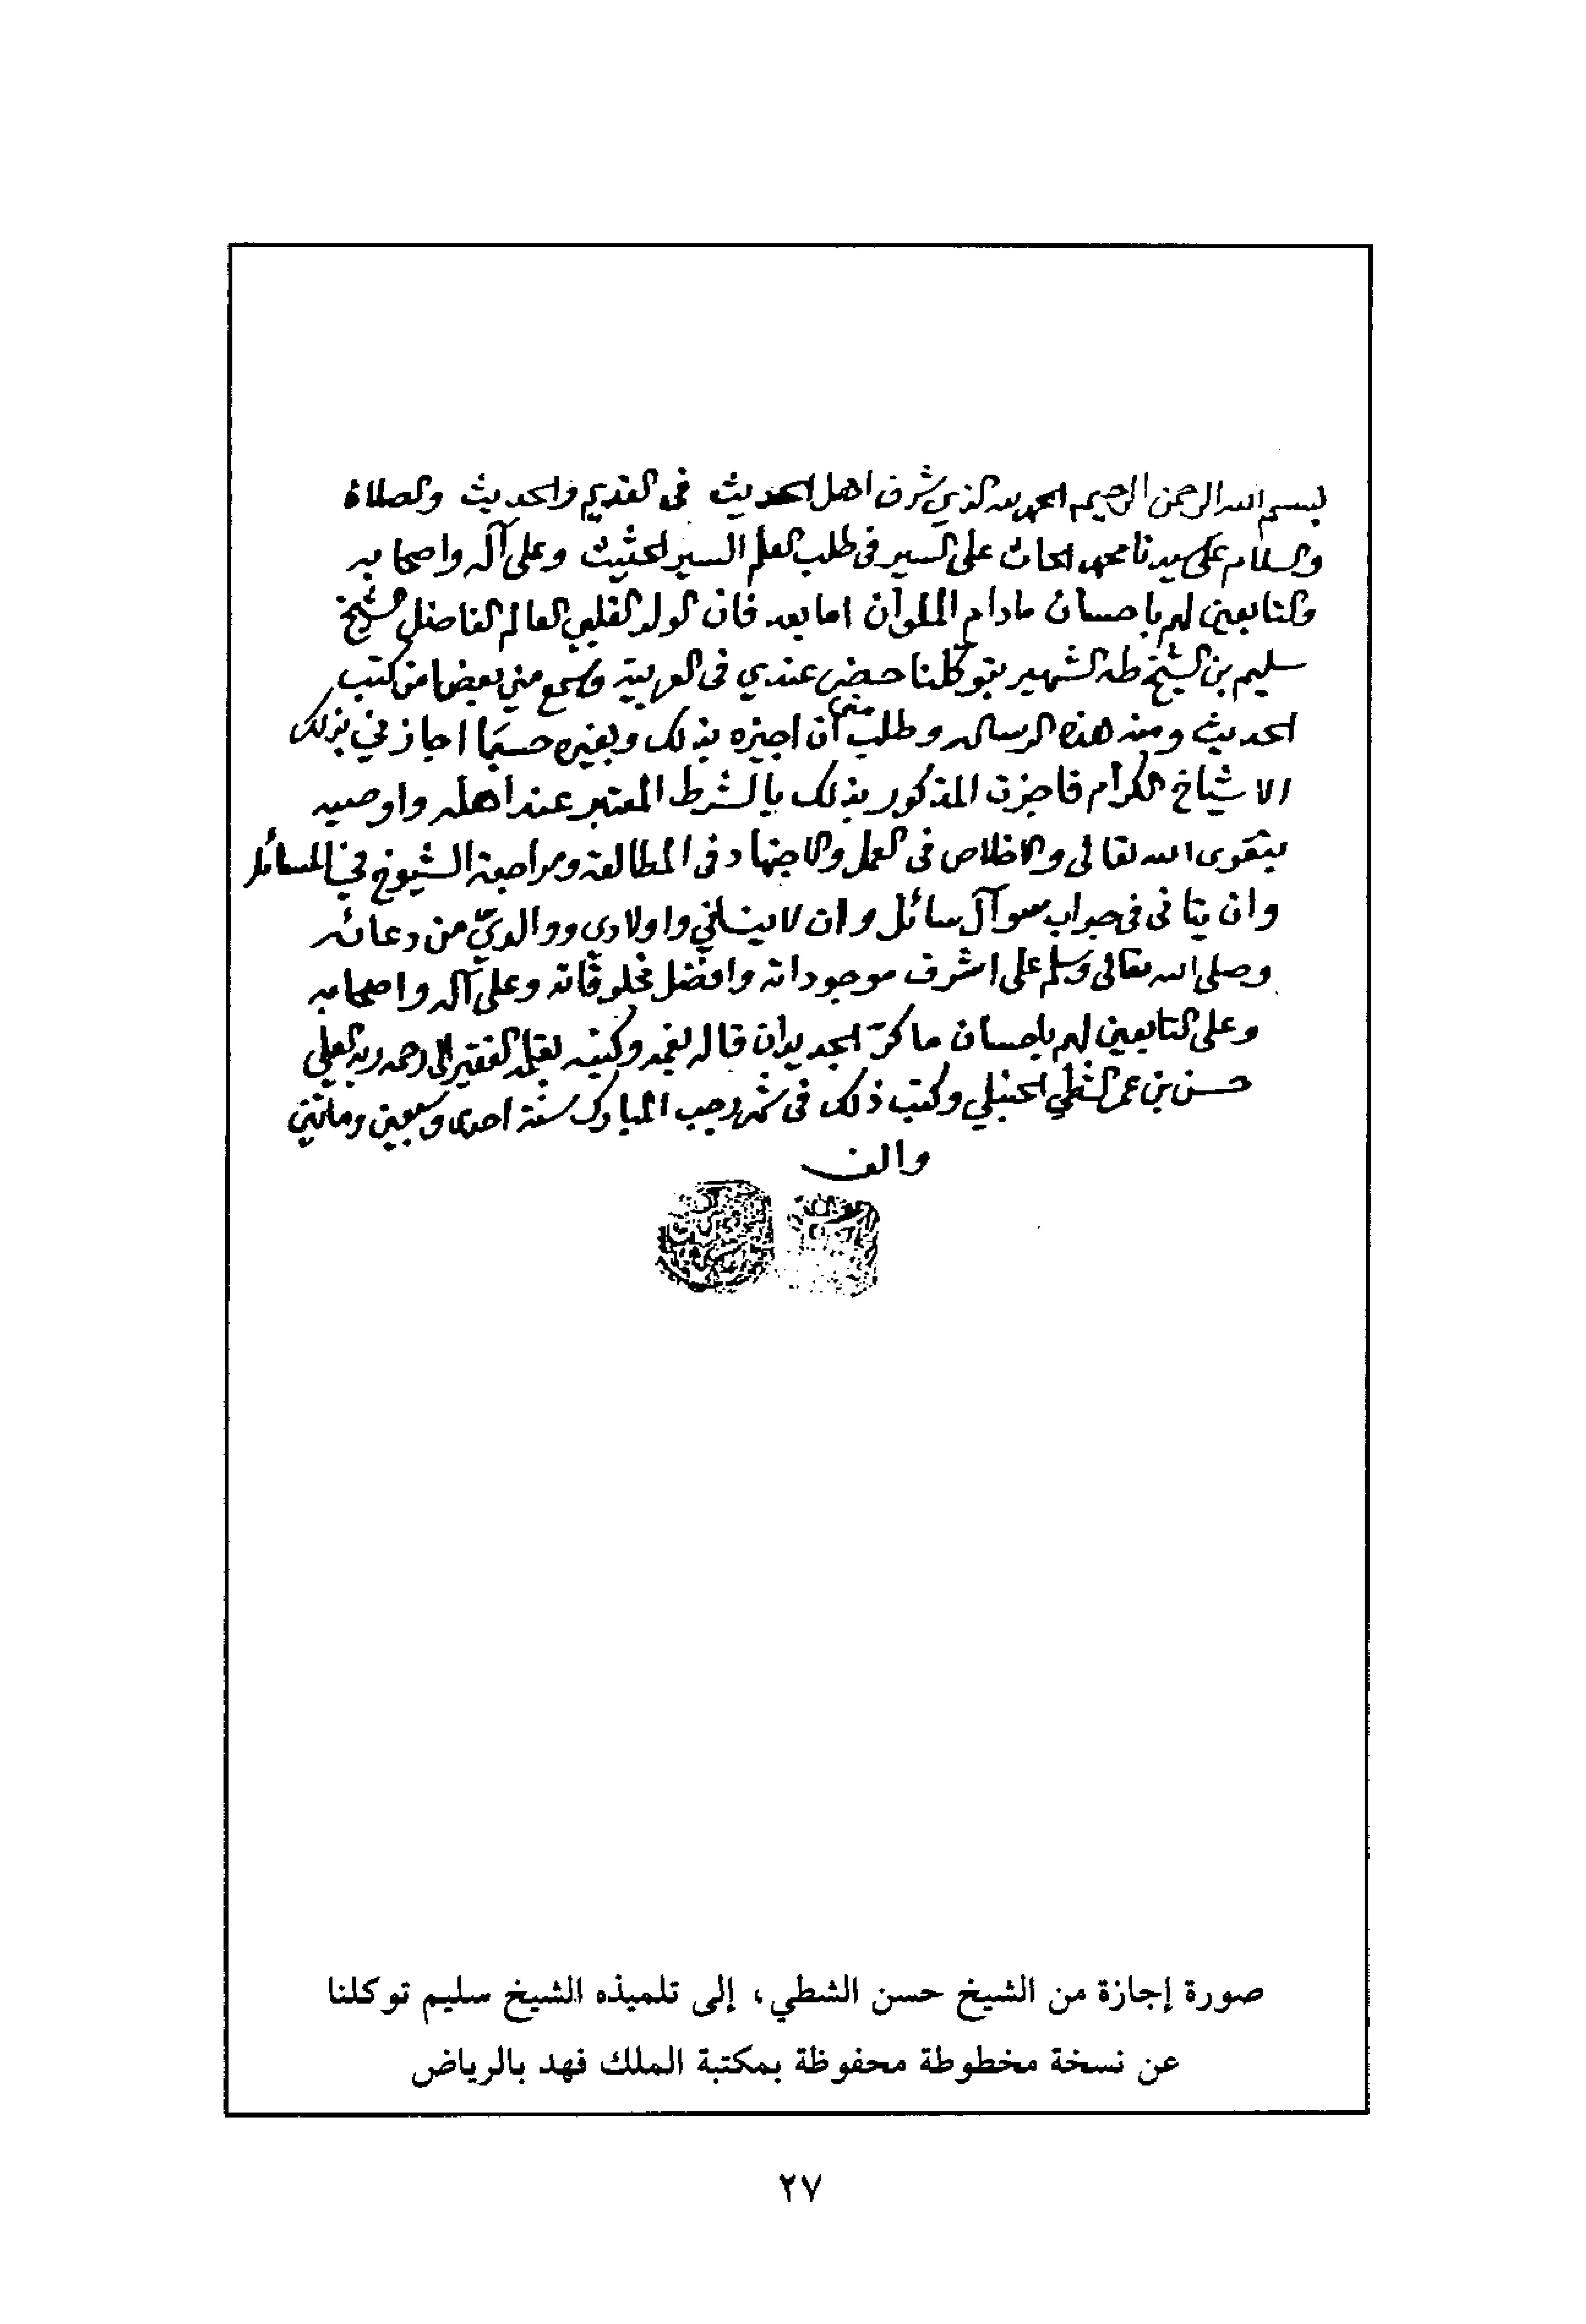 بسم الله الرحمن الرحيم الحمد لله الذي شرف اهل الحديث في القديم والحديث والصلاة
والسلام على سيدنا محمد الحاث على السير في طلب العلم السير الحثيث وعلى آله واصحابه
والتابعين لهم باحسان مادام الملوآن اما بعد فان الولد القلبي العالم الفاضل الشيخ
سليم بن الشيخ طه الشهير بتوكلنا حضر عندي في العربية وسمع مني بعضا من كتب
الحديث ومنه هذه الرساله وطلب مني أن اجيزه بذلك وبغيره حسبما اجازني بذلك
الاشياخ الكرام فاجزت المذكور بذلك بالشرط المعتبر عند اهله واوصيه
بتقوى الله تعالى والاخلاص في العمل والاجتهاد في المطالعة ومراجعة الشيوخ في المسائل
وان يتانى في جواب سوآل سائل وان لا ينساني واولادي ووالديّ من دعائه
وصلى الله تعالى وسلم على اشرف موجوداته وافضل مخلوقاته وعلى آله واصحابه
وعلى التابعين لهم باحسان ما كرّ الجديدان قاله بفمه وكتبه بقلمه الفقير الى رحمة ربه العلي
حسن بن عمر الشطي الحنبلي وكتب ذلك في شهر رجب المبارك سنة احدى وسبعين ومائتين
والف
صورة إجازة من الشيخ حسن الشطي، إلى تلميذه الشيخ سليم توكلنا
عن نسخة مخطوطة محفوظة بمكتبة الملك فهد بالرياض
٢٧